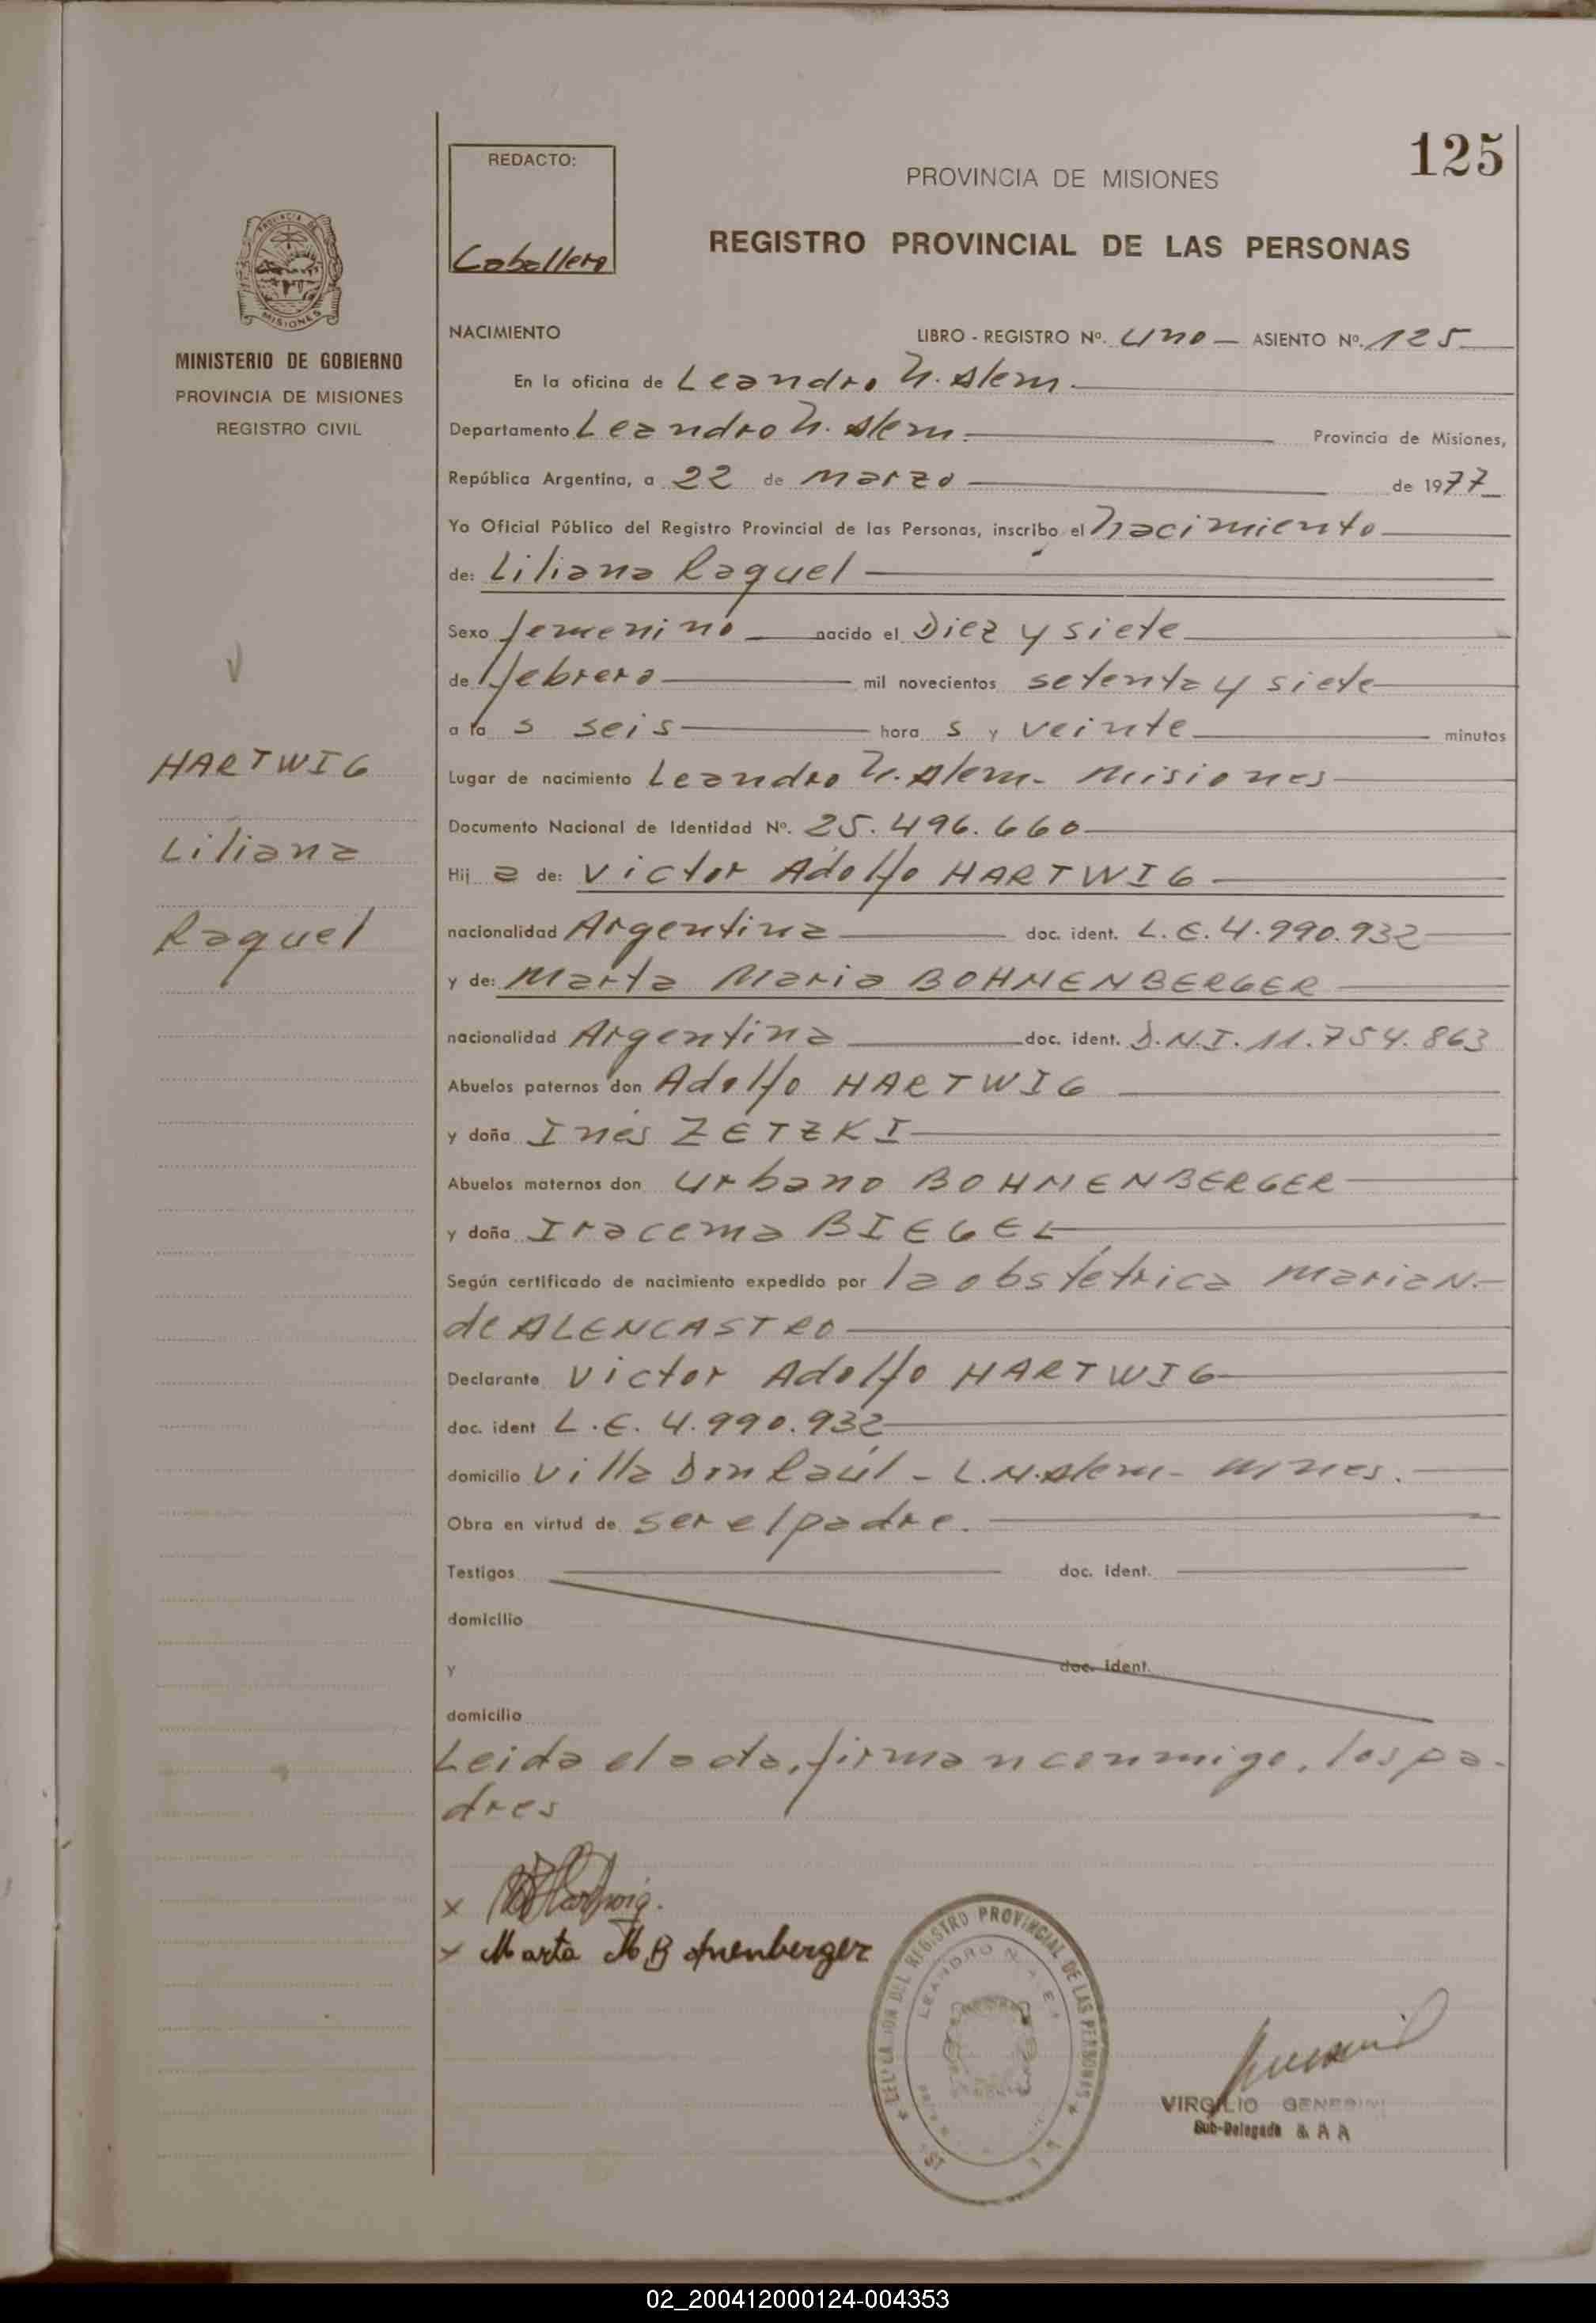 125
REDACTO:
Caballero
PROVINCIA DE MISIONES
REGISTRO PROVINCIAL DE LAS PERSONAS
PROVINCIA DE
MISIONES
MINISTERIO DE GOBIERNO
PROVINCIA DE MISIONES
REGISTRO CIVIL
HARTWIG
Liliana
Raquel
NACIMIENTO LIBRO - REGISTRO Nº. uno — ASIENTO Nº. 125
En la oficina de Leandro N. Alem.
Departamento Leandro N. Alem. Provincia de Misiones,
República Argentina, a 22 de marzo de 1977
Yo Oficial Público del Registro Provincial de las Personas, inscribo el nacimiento
de: Liliana Raquel
Sexo femenino nacido el Diez y siete
de febrero mil novecientos setenta y siete
a la s seis hora s y veinte minutos
Lugar de nacimiento Leandro N. Alem - Misiones
Documento Nacional de Identidad Nº. 25.496.660
Hij a de: Victor Adolfo HARTWIG
nacionalidad Argentina doc. ident. L.E. 4.990.932
y de: Marta Maria BOHNENBERGER
nacionalidad Argentina doc. ident. D.N.I. 11.754.863
Abuelos paternos don Adolfo HARTWIG
y doña Inés ZETZKI
Abuelos maternos don Urbano BOHNENBERGER
y doña Iracema BIEGEL
Según certificado de nacimiento expedido por la obstétrica Maria N.
de ALENCASTRO
Declarante Victor Adolfo HARTWIG
doc. ident L.E. 4.990.932
domicilio Villa Don Raúl - L.N. Alem - Mnes.
Obra en virtud de ser el padre.
Testigos doc. ident.
domicilio
y doc. ident.
domicilio
Leida el acta, firman conmigo, los pa-
dres
x Hartwig.
x Marta M B hnenberger
DEL REGISTRO PROVINCIAL DE LAS PERSONAS
LEANDRO N. ALE
VIRGILIO
Sub-Delegado
02_200412000124-004353